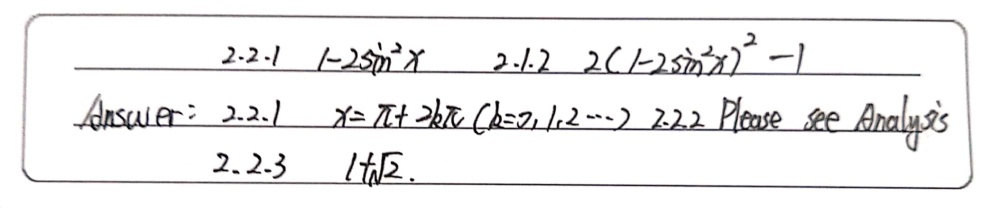 2.2.1 1-2sin²x 2.1.2 2(1-2sin²x)²-1
Answer: 2.2.1 x=π+2kπ (k=0,1,2…) 2.2.2 Please see Analysis
2.2.3 1+√2.